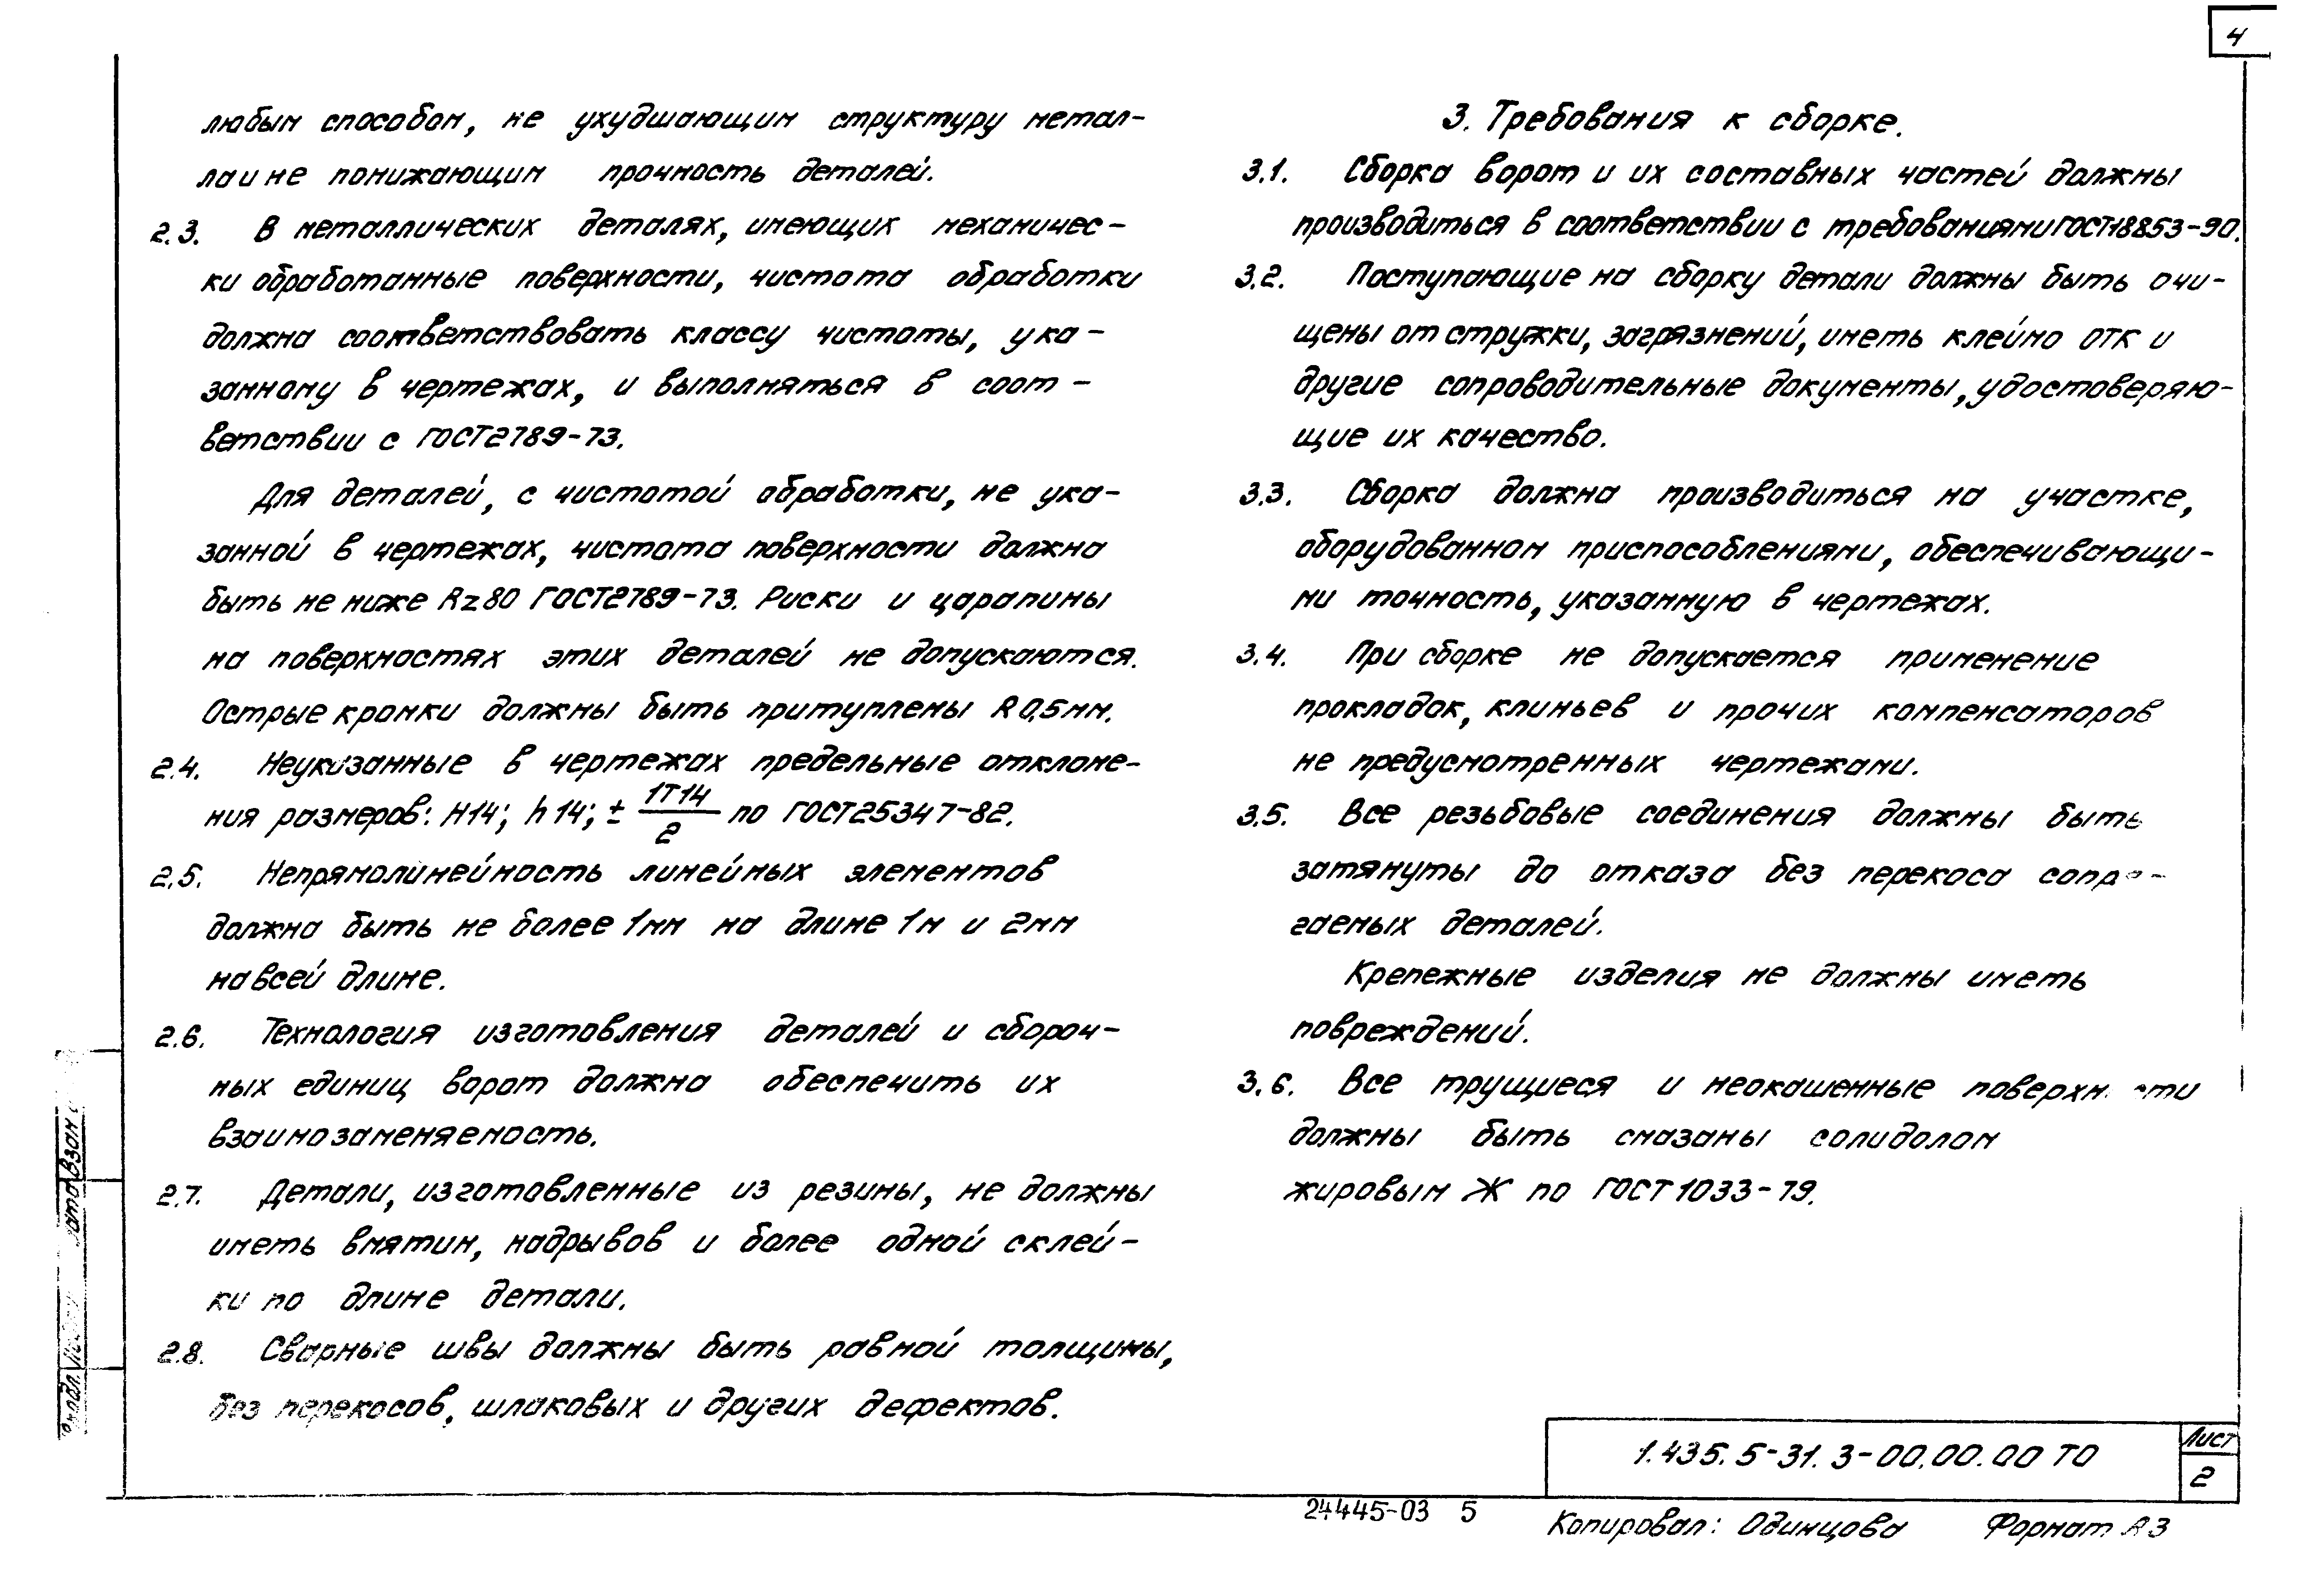 4
любым способом, не ухудшающим структуру метал-
ла и не понижающим прочность деталей.
2.3. В металлических деталях, имеющих механичес-
ки обработанные поверхности, чистота обработки
должна соответствовать классу чистоты, ука-
занному в чертежах, и выполняться в соот-
ветствии с ГОСТ2789-73.
Для деталей, с чистотой обработки, не ука-
занной в чертежах, чистота поверхности должна
быть не ниже Rz80 ГОСТ2789-73. Риски и царапины
на поверхностях этих деталей не допускаются.
Острые кромки должны быть притуплены R 0,5мм.
2.4. Неуказанные в чертежах предельные отклоне-
ния размеров: H14; h14; ± IT14/2 по ГОСТ25347-82.
2.5. Непрямолинейность линейных элементов
должна быть не более 1мм на длине 1м и 2мм
на всей длине.
2.6. Технология изготовления деталей и сбороч-
ных единиц ворот должна обеспечить их
взаимозаменяемость.
2.7. Детали, изготовленные из резины, не должны
иметь вмятин, надрывов и более одной склей-
ки по длине детали.
2.8. Сварные швы должны быть равной толщины,
без перекосов, шлаковых и других дефектов.
3. Требования к сборке.
3.1. Сборка ворот и их составных частей должны
производиться в соответствии с требованиями ГОСТ18853-90.
3.2. Поступающие на сборку детали должны быть очи-
щены от стружки, загрязнений, иметь клеймо ОТК и
другие сопроводительные документы, удостоверяю-
щие их качество.
3.3. Сборка должна производиться на участке,
оборудованном приспособлениями, обеспечивающи-
ми точность, указанную в чертежах.
3.4. При сборке не допускается применение
прокладок, клиньев и прочих компенсаторов
не предусмотренных чертежами.
3.5. Все резьбовые соединения должны быть
затянуты до отказа без перекоса сопря-
гаемых деталей.
Крепежные изделия не должны иметь
повреждений.
3.6. Все трущиеся и неокашенные поверхности
должны быть смазаны солидолом
жировым Ж по ГОСТ 1033-79.
1.435.5-31.3-00.00.00 ТО
Лист
2
24445-03 5
Копировал: Одинцова Формат А3